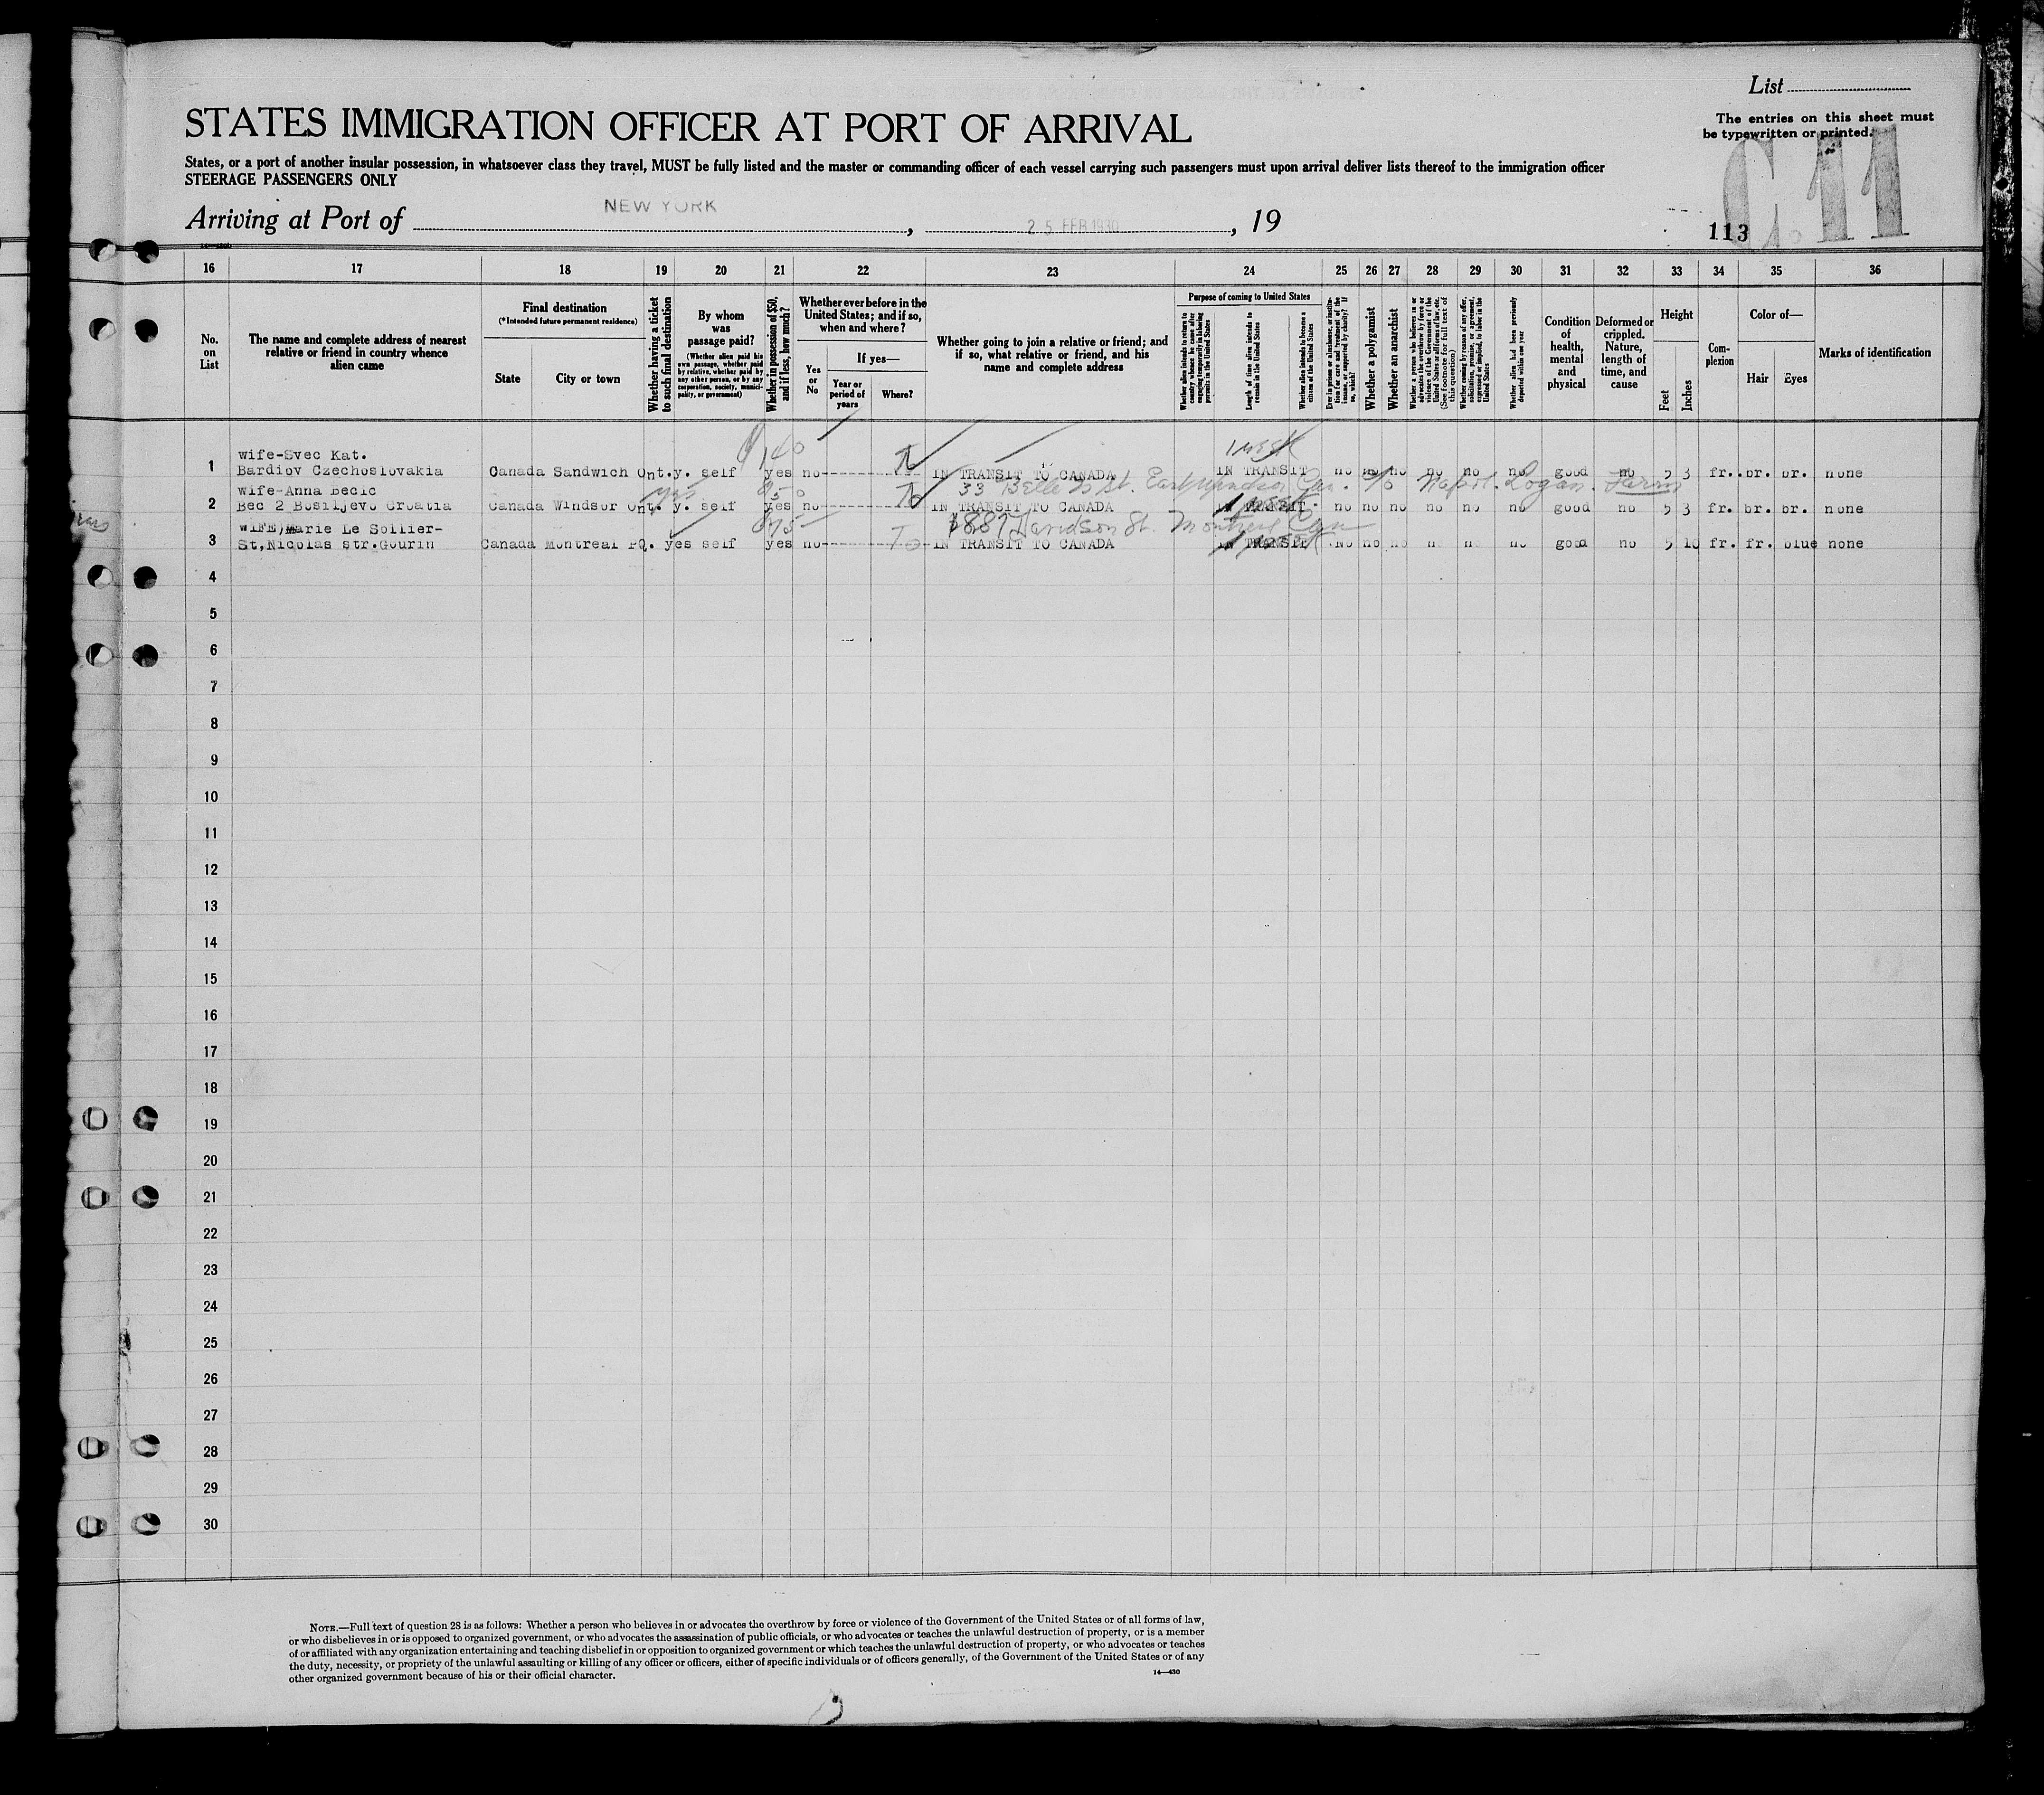 List
The entries on this sheet must
be typewritten or printed.
STATES IMMIGRATION OFFICER AT PORT OF ARRIVAL
States, or a port of another insular possession, in whatsoever class they travel, MUST be fully listed and the master or commanding officer of each vessel carrying such passengers must upon arrival deliver lists thereof to the immigration officer
STEERAGE PASSENGERS ONLY
C 11
Arriving at Port of NEW YORK, 25 FEB 1930, 19
113
16 17 18 19 20 21 22 23 24 25 26 27 28 29 30 31 32 33 34 35 36
No. on List
The name and complete address of nearest relative or friend in country whence alien came
Final destination
(*Intended future permanent residence)
State
City or town
Whether having a ticket to such final destination
By whom was passage paid?
(Whether alien paid his own passage, whether paid by relative, whether paid by any other person, or by any corporation, society, municipality, or government)
Whether in possession of $50, and if less, how much?
Whether ever before in the United States; and if so, when and where?
Yes or No
If yes—
Year or period of years
Where?
Whether going to join a relative or friend; and if so, what relative or friend, and his name and complete address
Purpose of coming to United States
Whether alien intends to return to country whence he came after engaging temporarily in laboring pursuits in the United States
Length of time alien intends to remain in the United States
Whether alien intends to become a citizen of the United States
Ever in prison or almshouse, or institution for care and treatment of the insane, or supported by charity? If so, which?
Whether a polygamist
Whether an anarchist
Whether a person who believes in or advocates the overthrow by force or violence of the Government of the United States or all forms of law, etc. (See footnote for full text of this question)
Whether coming by reason of any offer, solicitation, promise, or agreement, expressed or implied, to labor in the United States
Whether alien had been previously deported within one year
Condition of health, mental and physical
Deformed or crippled. Nature, length of time, and cause
Height
Feet
Inches
Complexion
Color of—
Hair
Eyes
Marks of identification
140 1 WEEK
wife-Svec Kat.
1 Bardiov Czechoslovakia Canada Sandwich Ont. y. self yes no IN TRANSIT TO CANADA IN TRANSIT no no no no no no good no 5 3 fr. br. br. none
wife-Anna Becic yes 33 Belle St. East Windsor Can. c/o Napol. Logan
2 Bec 2 Bosiljevo Croatia Canada Windsor Ont. y. self yes no IN TRANSIT TO CANADA IN TRANSIT no no no no no no good no 5 3 fr. br. br. none
WIFE) Marie Le Sollier- 75 1887 Davidson St. Montreal Can
3 St, Nicolas str. Gourin Canada Montreal PQ. yes self yes no IN TRANSIT TO CANADA IN TRANSIT no no no no no no good no 5 10 fr. fr. blue none
4
5
6
7
8
9
10
11
12
13
14
15
16
17
18
19
20
21
22
23
24
25
26
27
28
29
30
NOTE.—Full text of question 28 is as follows: Whether a person who believes in or advocates the overthrow by force or violence of the Government of the United States or of all forms of law,
or who disbelieves in or is opposed to organized government, or who advocates the assassination of public officials, or who advocates or teaches the unlawful destruction of property, or is a member
of or affiliated with any organization entertaining and teaching disbelief in or opposition to organized government or which teaches the unlawful destruction of property, or who advocates or teaches
the duty, necessity, or propriety of the unlawful assaulting or killing of any officer or officers, either of specific individuals or of officers generally, of the Government of the United States or of any
other organized government because of his or their official character.
14—430